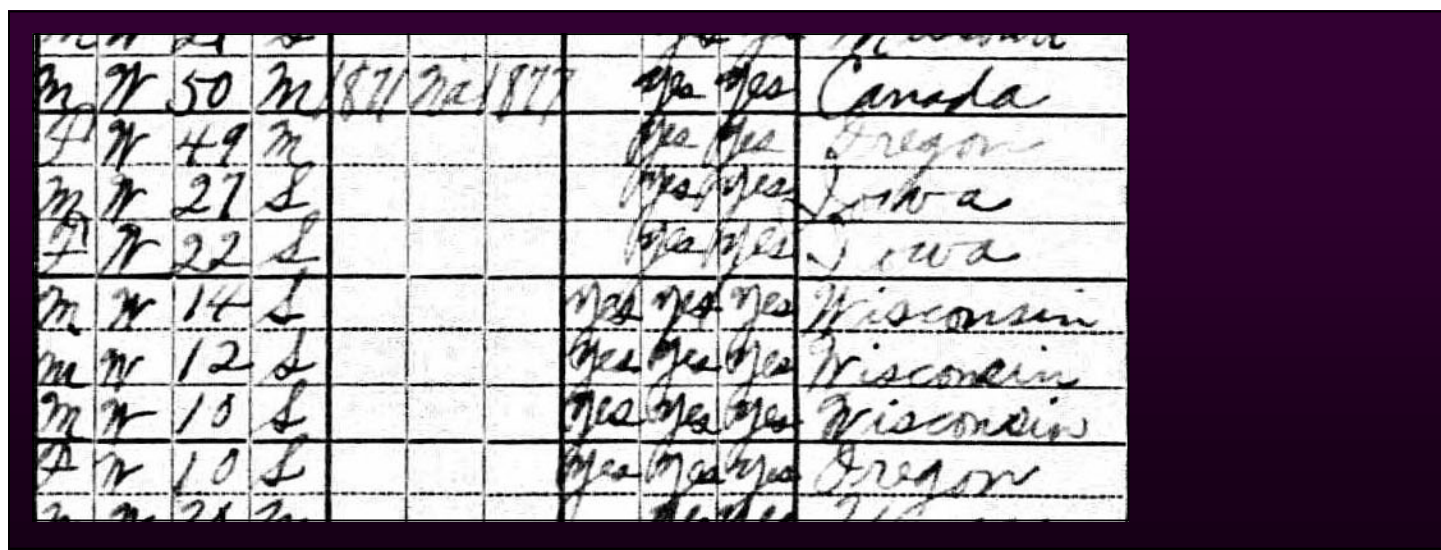 M W 50 M 1871 Na 1877 yes yes Canada
F W 49 M yes yes Oregon
M W 27 S yes yes Iowa
F W 22 S yes yes Iowa
M W 14 S yes yes yes Wisconsin
M W 12 S yes yes yes Wisconsin
M W 10 S yes yes yes Wisconsin
F W 10 S yes yes yes Oregon